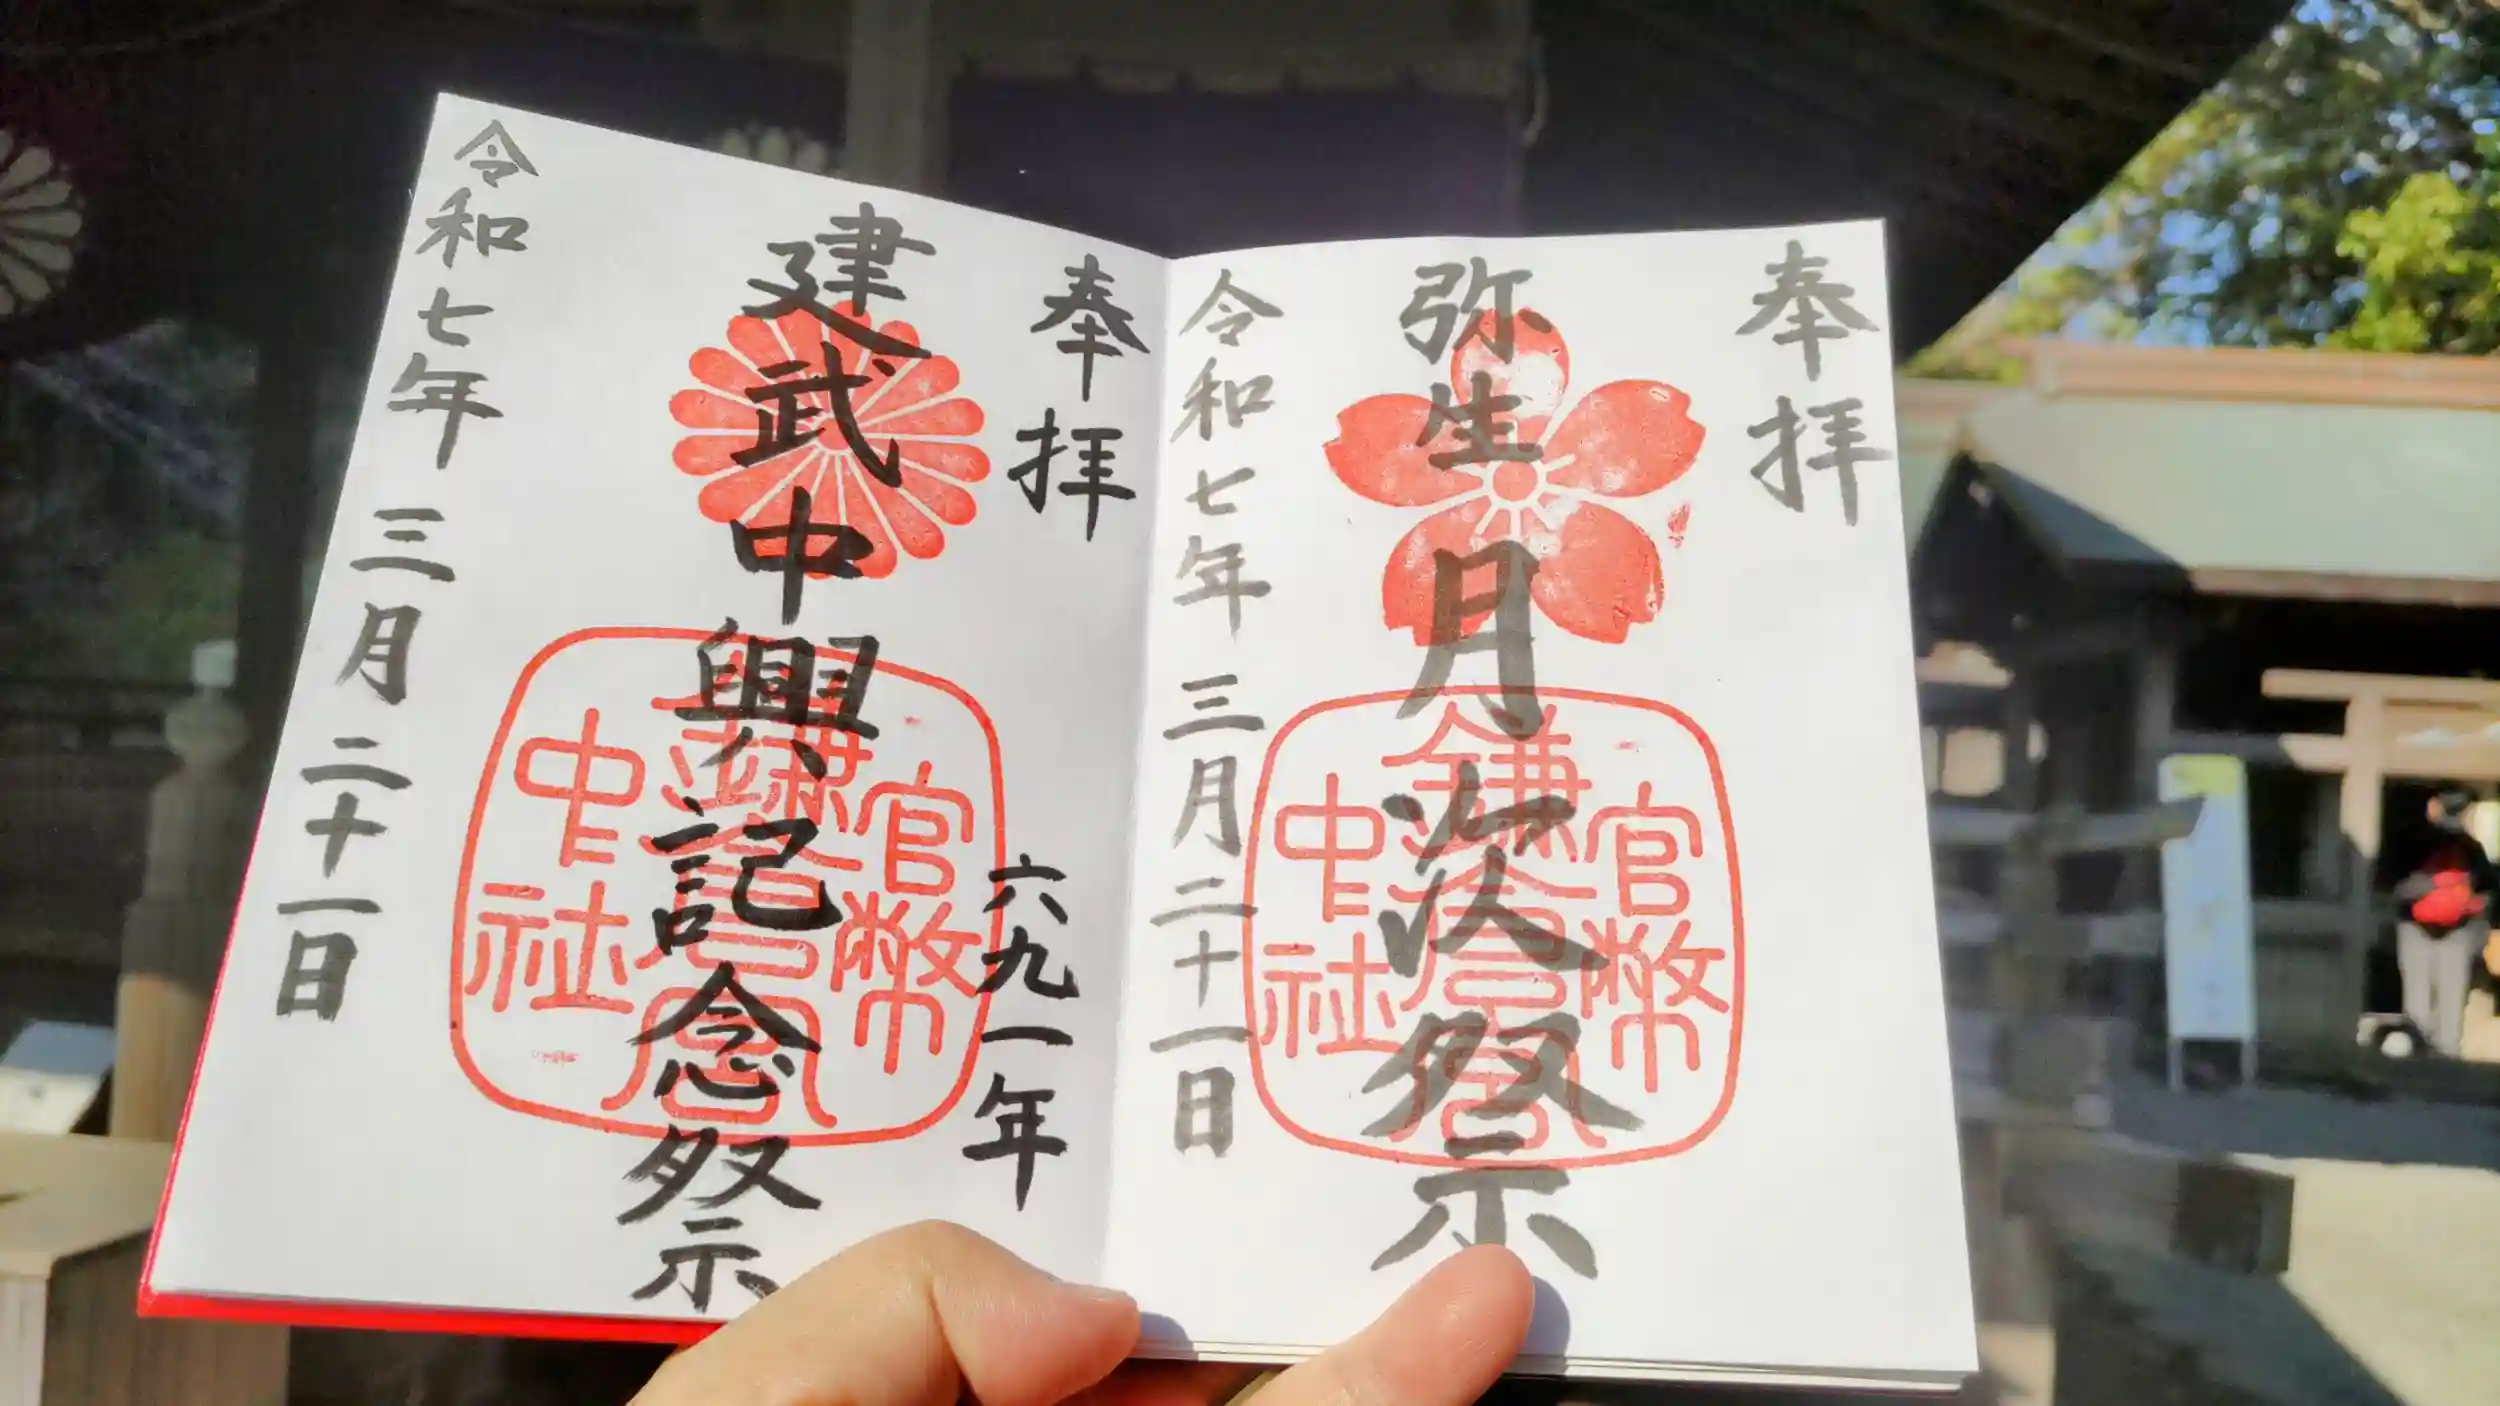 奉拝
弥生月次祭
官幣
鎌倉宮
中社
令和七年三月二十一日
奉拝
六九一年
建武中興記念祭
官幣
鎌倉宮
中社
令和七年三月二十一日